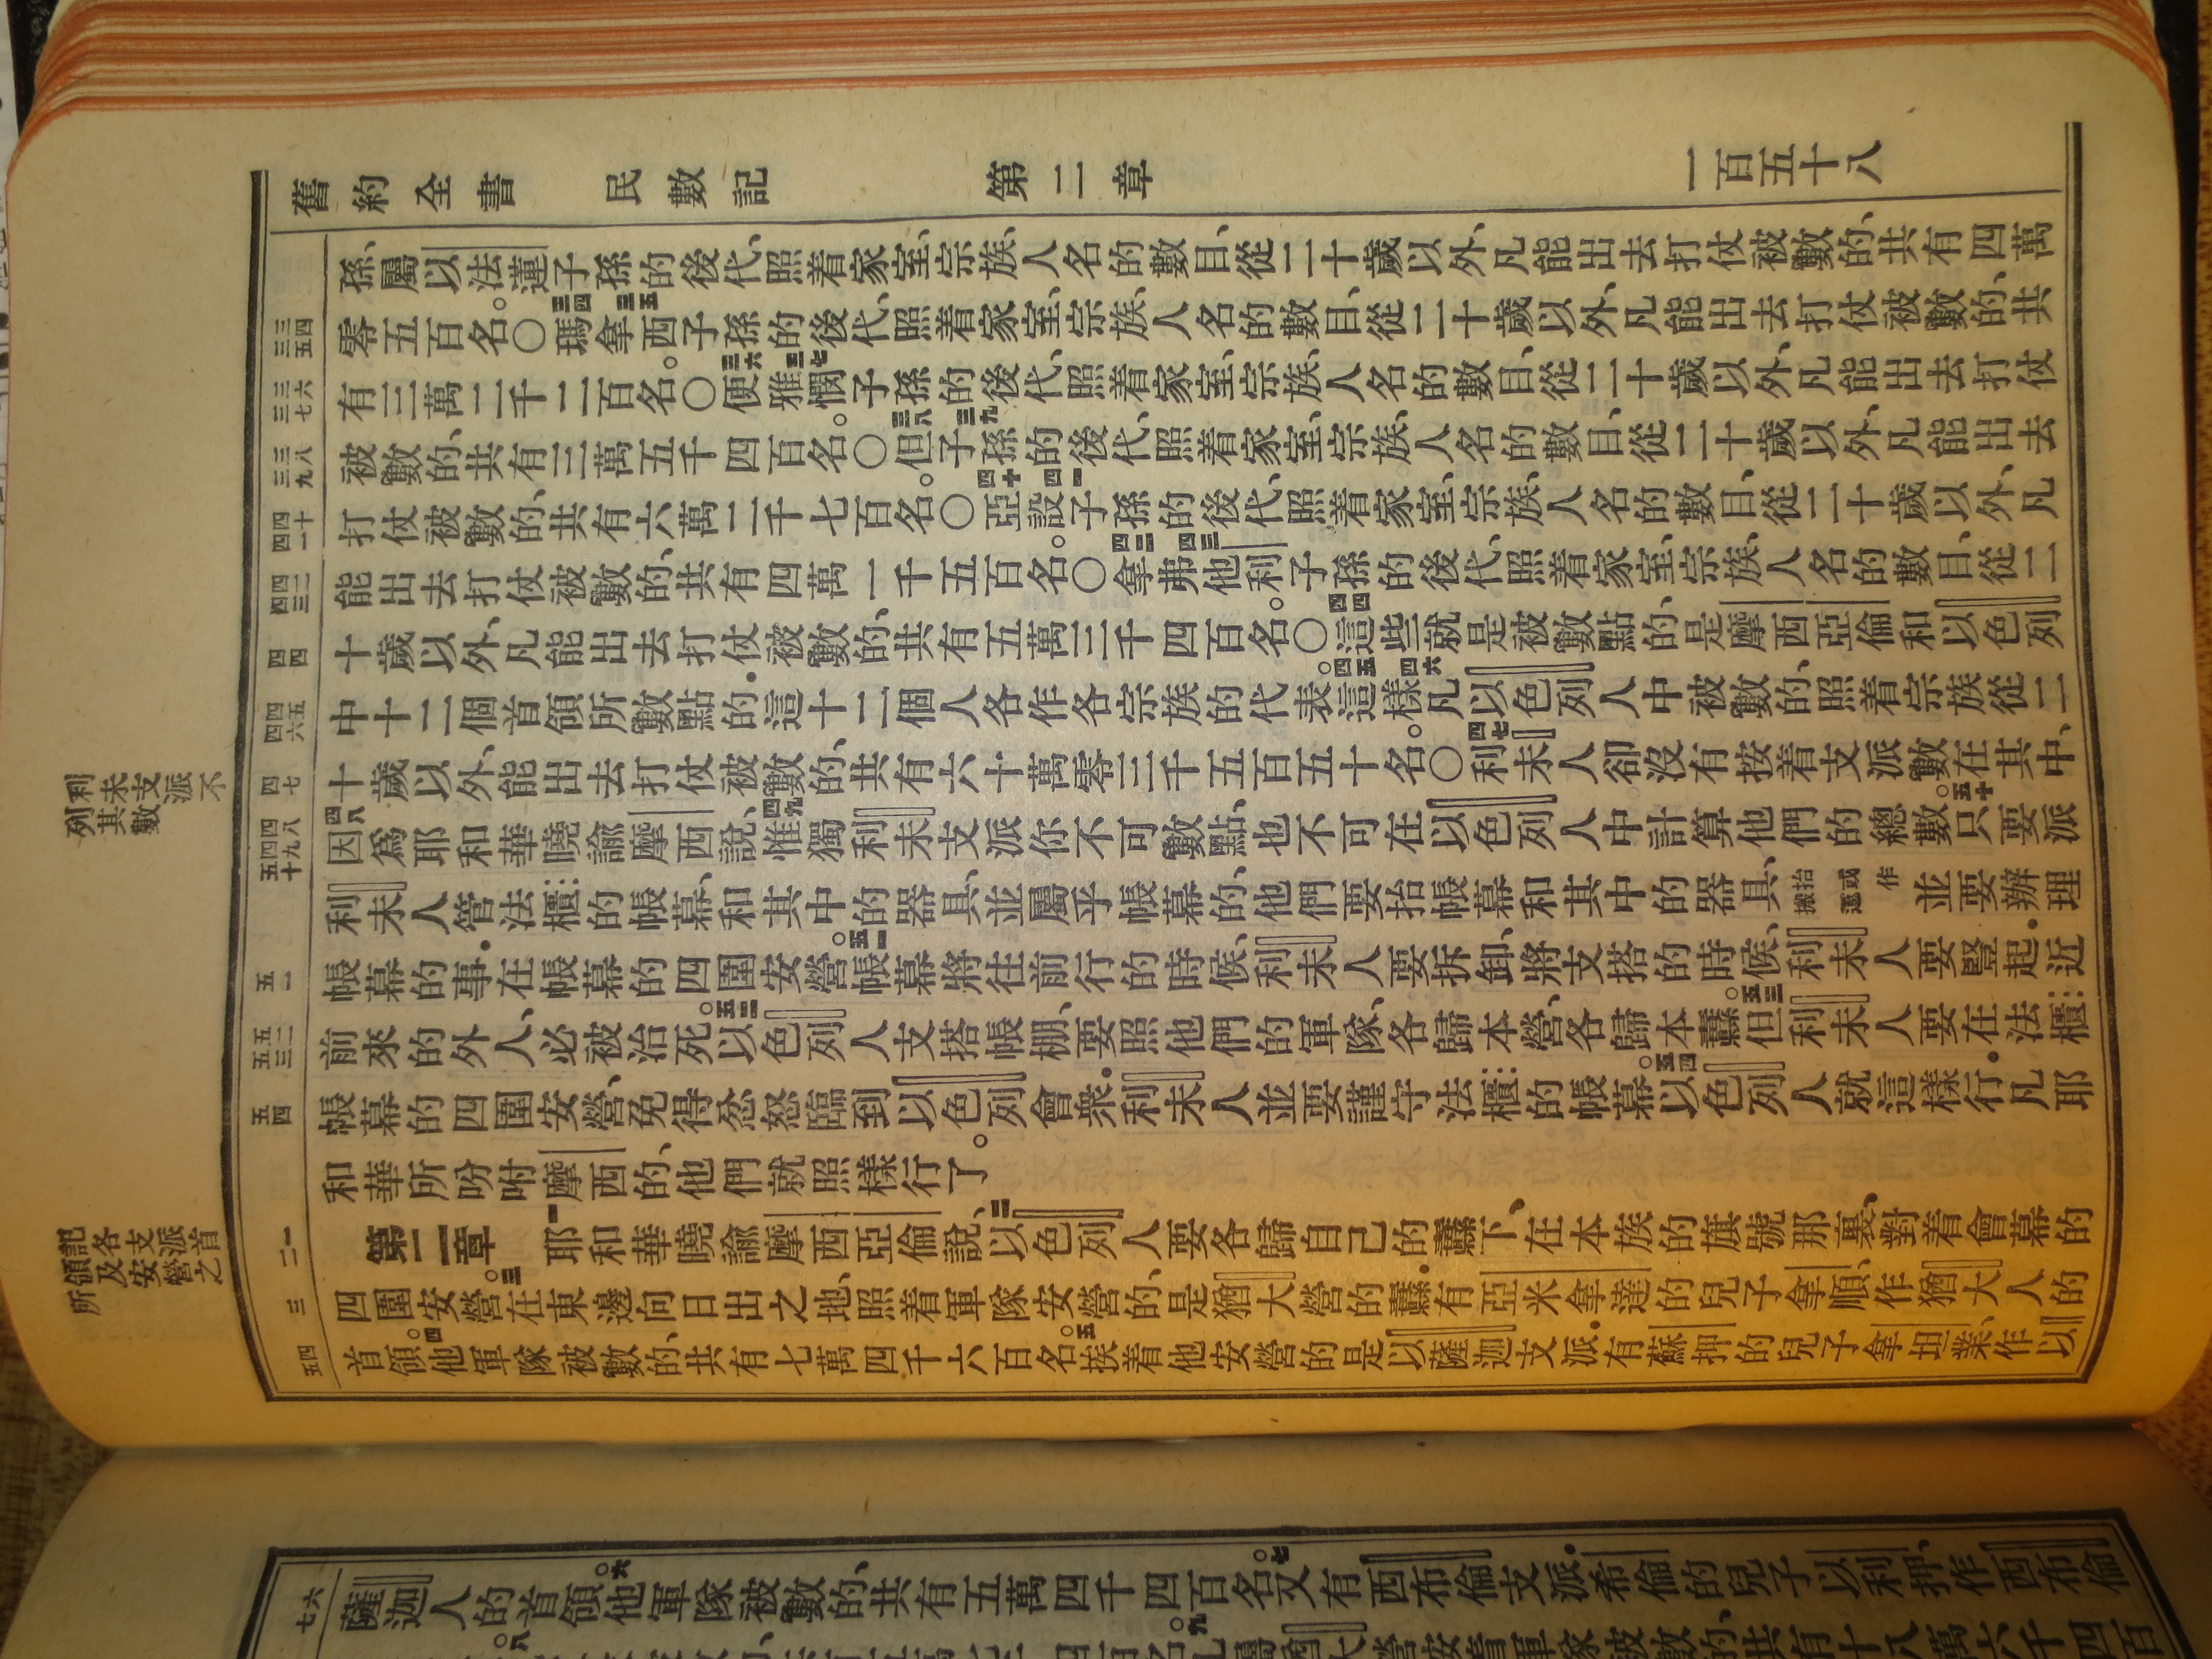 舊約全書　民數記　第二章　一百五十八
孫、屬以法蓮子孫的後代、照着家室、宗族、人名的數目、從二十歲以外、凡能出去打仗被數的、共有四萬
三四
三五
零五百名。○三四瑪拿三五西子孫的後代、照着家室、宗族、人名的數目、從二十歲以外、凡能出去打仗被數的、共
三六
三七
有三萬二千二百名。○三六便雅三七憫子孫的後代、照着家室、宗族、人名的數目、從二十歲以外、凡能出去打仗
三八
三九
被數的、共有三萬五千四百名。○三八但子三九孫的後代、照着家室、宗族、人名的數目、從二十歲以外、凡能出去
四十
四一
打仗被數的、共有六萬二千七百名。○四十亞設四一子孫的後代、照着家室、宗族、人名的數目、從二十歲以外、凡
四二
四三
能出去打仗被數的、共有四萬一千五百名。○四二拿弗四三他利子孫的後代、照着家室、宗族、人名的數目、從二
四四
十歲以外、凡能出去打仗被數的、共有五萬三千四百名。○四四這些就是被數點的、是摩西亞倫和以色列
四五
四六
中十二個首領所數點的．這十二個人各作各宗族的代表。四五這樣、四六凡以色列人中被數的、照着宗族從二
四七
十歲以外、能出去打仗被數的、共有六十萬零三千五百五十名。○四七利未人卻沒有按着支派數在其中、
利未支派不
列其數
四八
四九
五十
四八因爲耶和華曉諭摩西說、四九惟獨利未支派你不可數點、也不可在以色列人中計算他們的總數。五十只要派
利未人管法櫃的帳幕、和其中的器具、並屬乎帳幕的、他們要抬帳幕和其中的器具、抬或作搬運並要辦理
五一
帳幕的事．在帳幕的四圍安營。五一帳幕將往前行的時候、利未人要拆卸、將支搭的時候、利未人要豎起．近
五二
五三
前來的外人、必被治死。五二以色列人支搭帳棚、要照他們的軍隊、各歸本營、各歸本纛。五三但利未人要在法櫃
五四
帳幕的四圍安營、免得忿怒臨到以色列會衆．利未人並要謹守法櫃的帳幕。五四以色列人就這樣行．凡耶
和華所吩咐摩西的、他們就照樣行了。
記各支派首
領及安營之
所
一
二
第二章　一耶和華曉諭摩西亞倫說、二以色列人要各歸自己的纛下、在本族的旗號那裏、對着會幕的
三
四圍安營。三在東邊向日出之地、照着軍隊安營的、是猶大營的纛．有亞米拿達的兒子拿順、作猶大人的
四
五
首領。四他軍隊被數的、共有七萬四千六百名。五挨着他安營的是以薩迦支派．有蘇押的兒子拿坦業、作以
六
七
薩迦人的首領。六他軍隊被數的、共有五萬四千四百名。七又有西布倫支派．希倫的兒子以利押、作西布倫